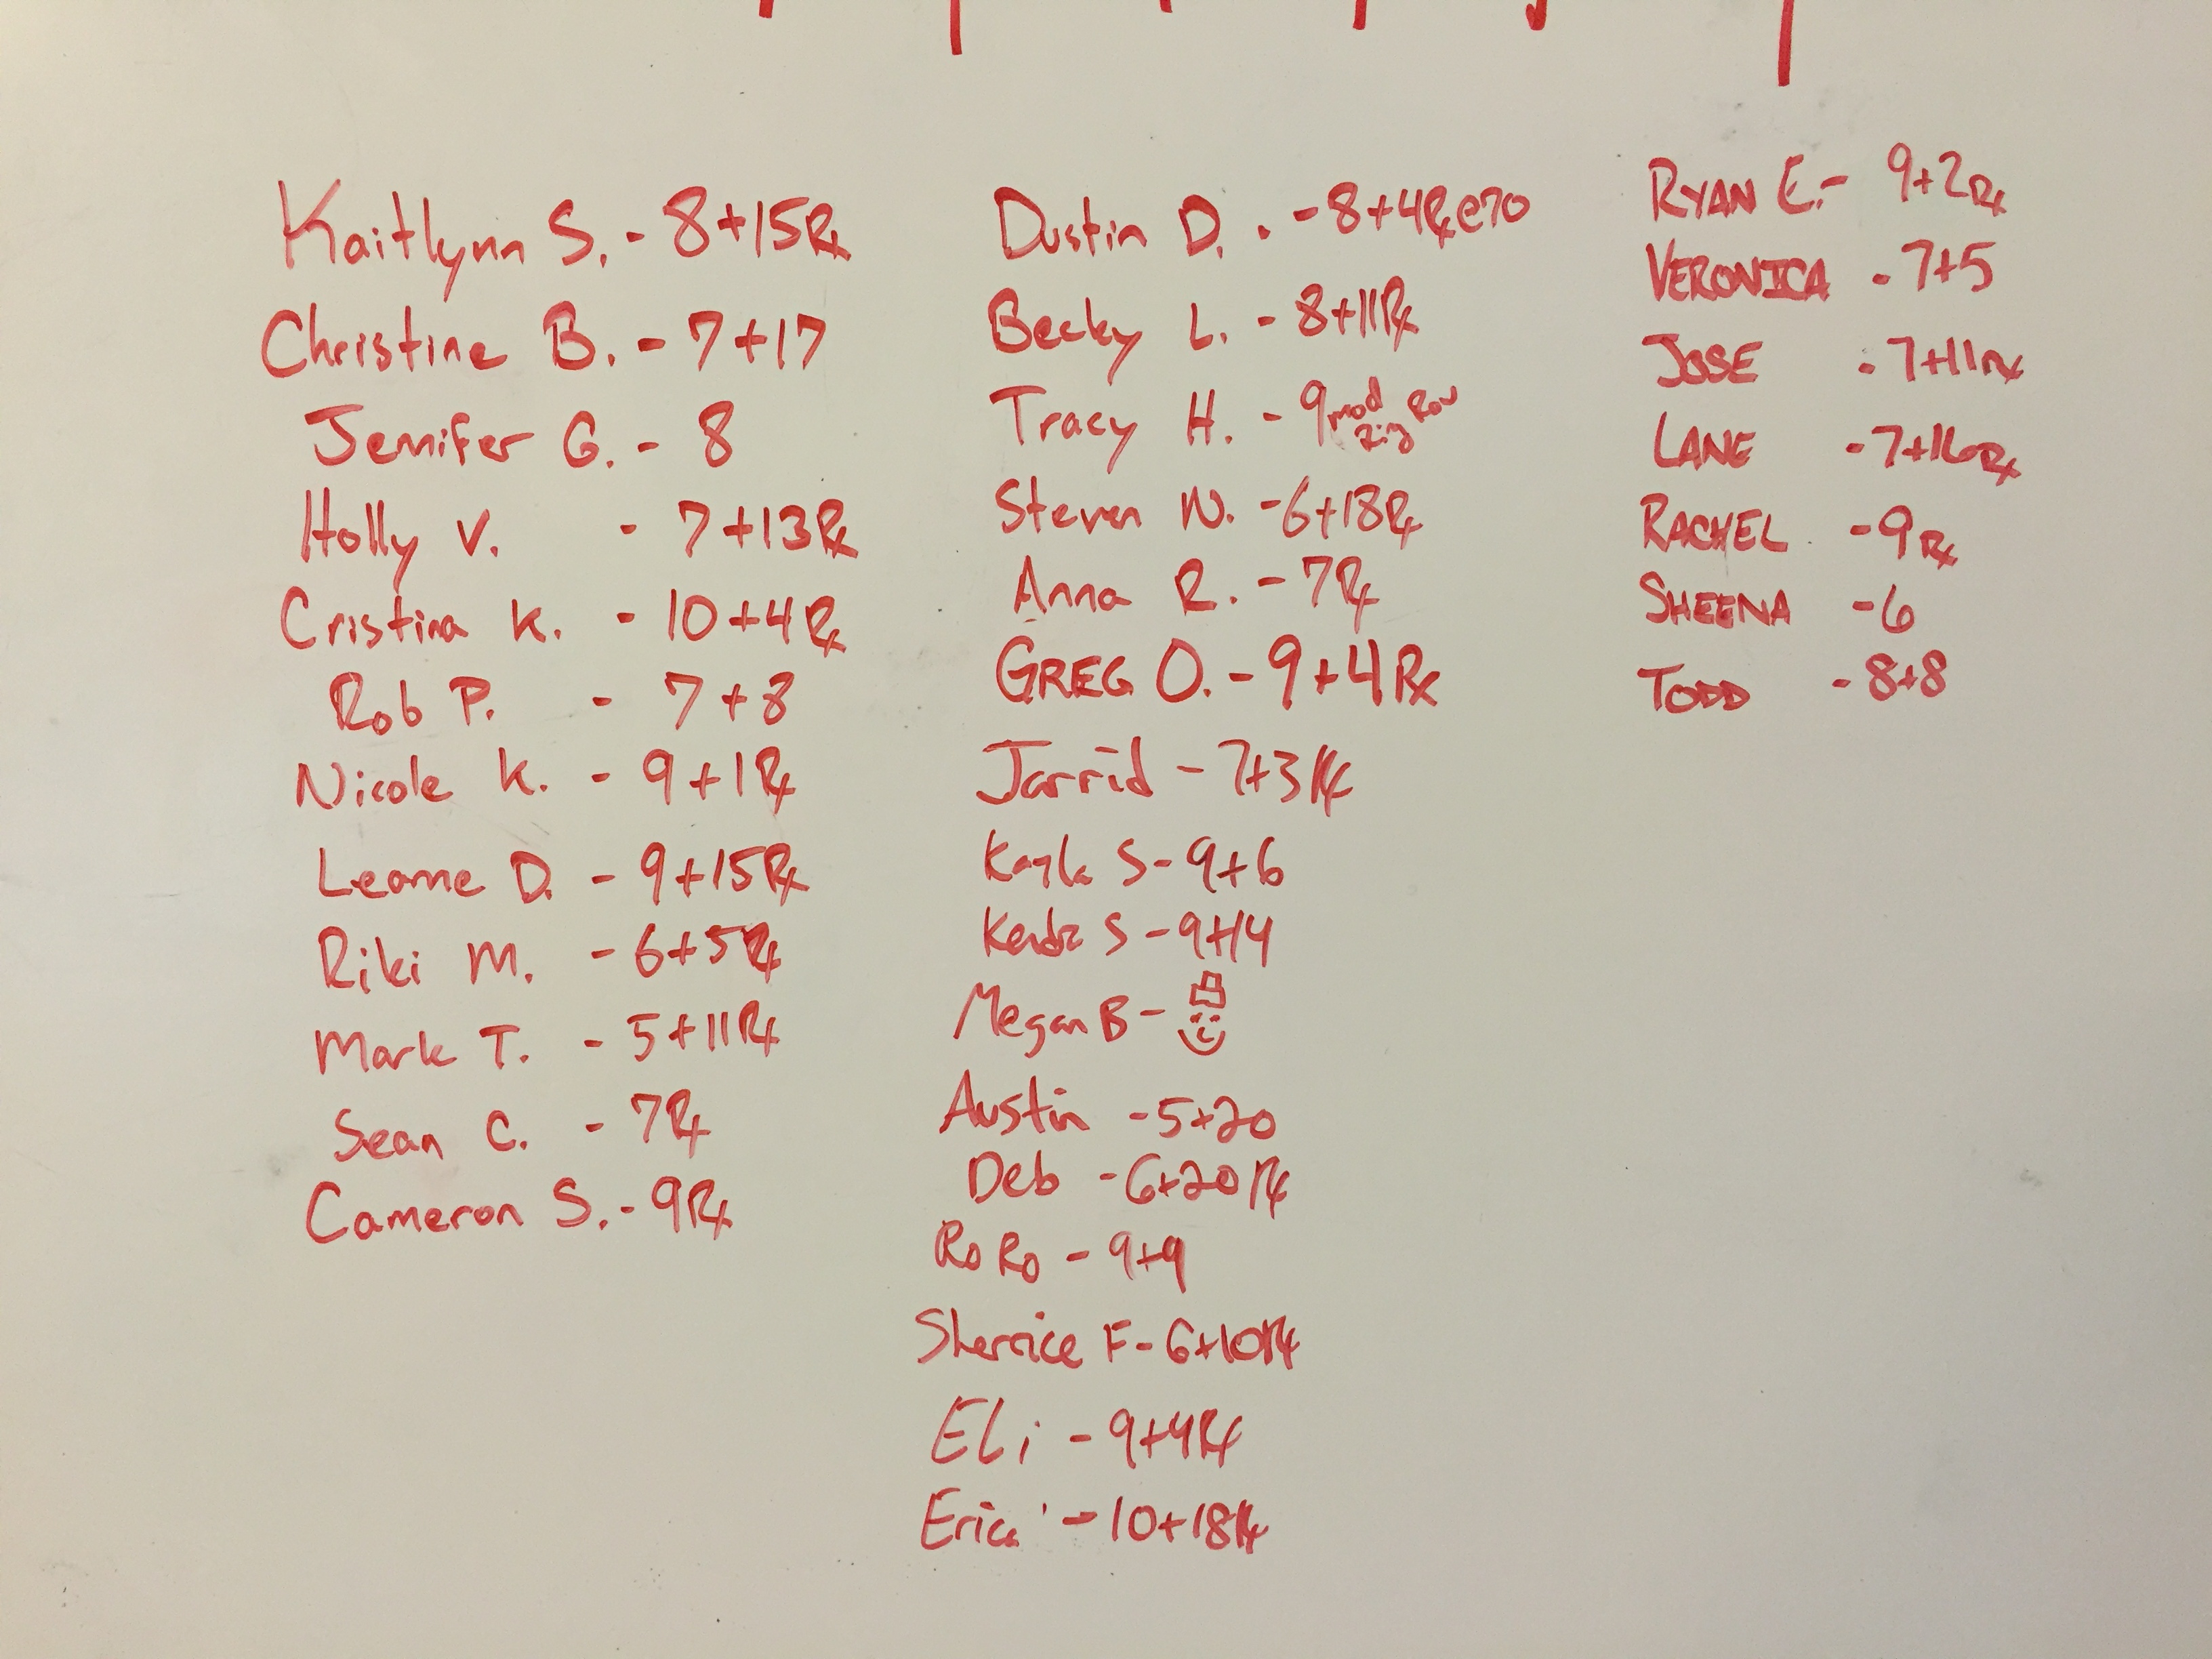 Kaitlynn S. - 8+15Rx
Christine B. - 7+17
Jennifer G. - 8
Holly V. - 7+13Rx
Cristina K. - 10+4Rx
Rob P. - 7+8
Nicole K. - 9+1Rx
Leanne D. - 9+15Rx
Riki M. - 6+5Rx
Mark T. - 5+11Rx
Sean C. - 7Rx
Cameron S. - 9Rx
Dustin D. - 8+4Rx@70
Becky L. - 8+11Rx
Tracy H. - 9 mod Row
Steven W. - 6+18Rx
Anna R. - 7Rx
GREG O. - 9+4Rx
Jarrid - 7+3Rx
Kayla S - 9+6
S - 9+14
Megan B -
Austin - 5+20
Deb - 6+20Rx
RoRo - 9+9
Sherrice F - 6+10Rx
Eli - 9+4Rx
Erica - 10+18Rx
RYAN E. - 9+2Rx
VERONICA - 7+5
JOSE - 7+11Rx
LANE - 7+16Rx
RACHEL - 9Rx
SHEENA - 6
TODD - 8+8